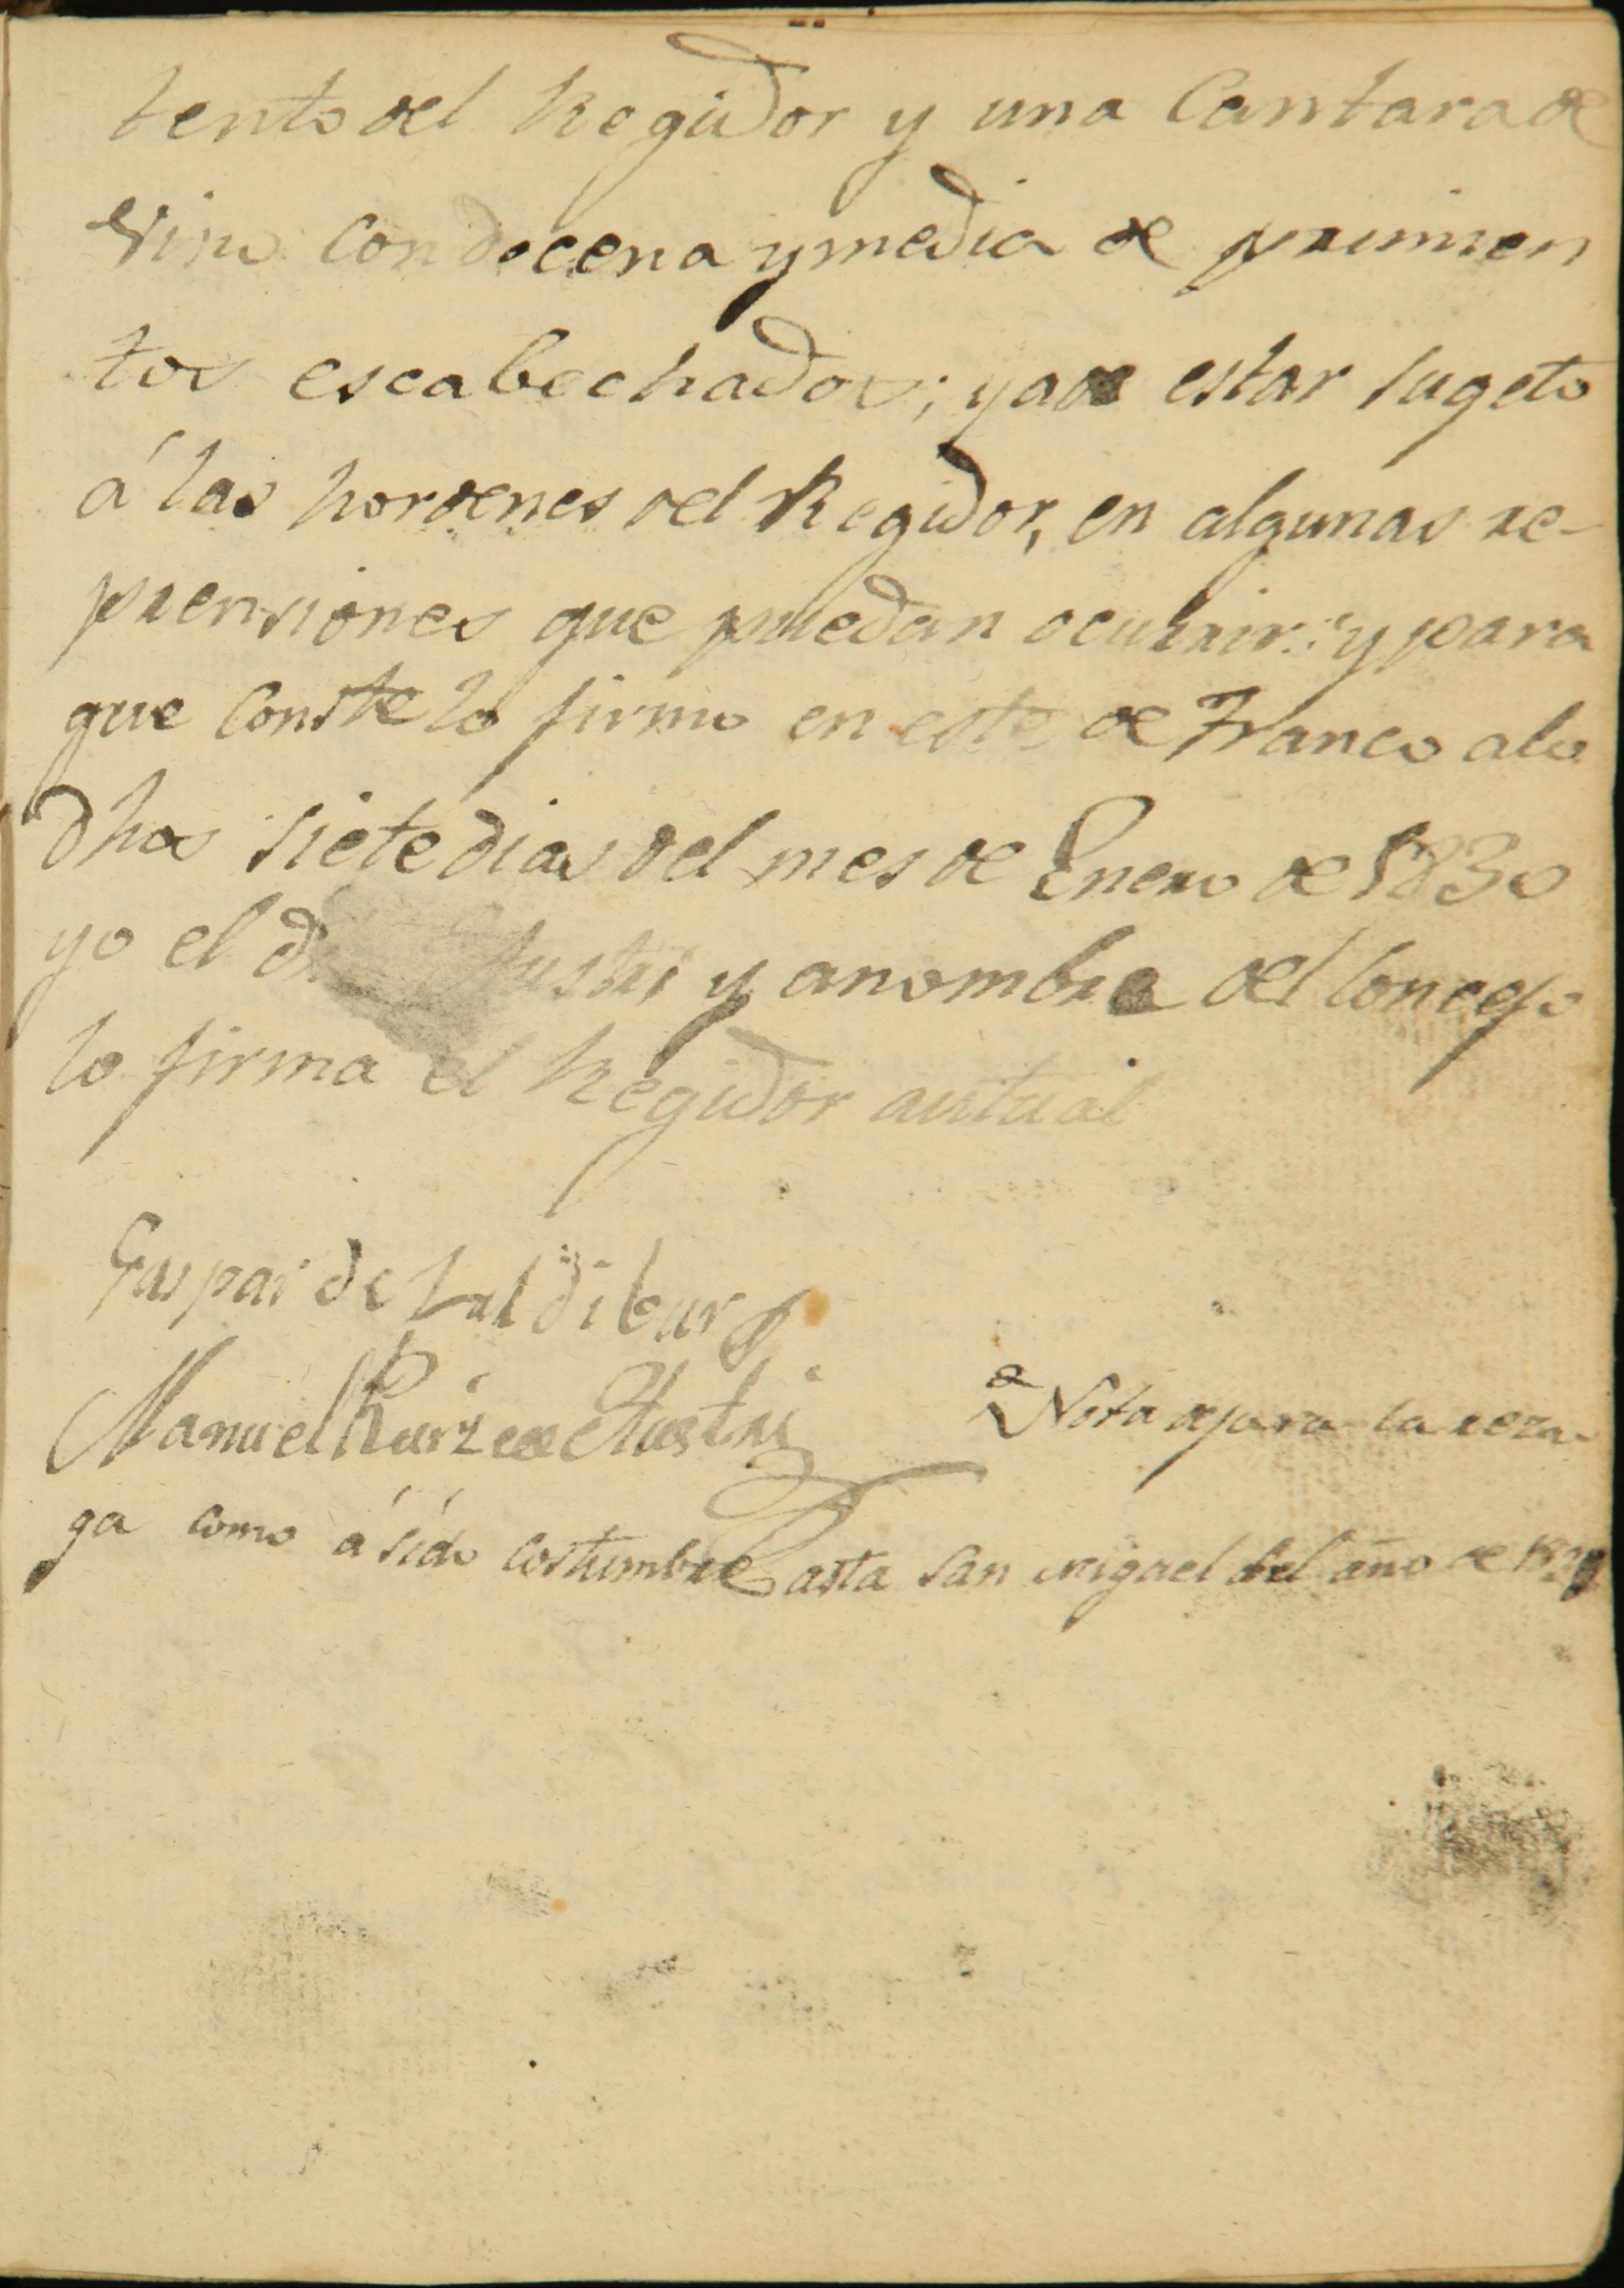 tento del Regidor y una Cantara de
Vino con docena y media de primien
tos escabechados; y a de estar sugeto
á las hordenes del Regidor, en algunas re-
prensiones que puedan ocurrir: y para
que conste lo firmo en este de Franco a lo
dhos siete dias del mes de Enero de 1830
yo el Austri y a nombre del Concejo
lo firma el Regidor autual
Gaspar de
Manuel Ruiz de Austri
Nota
ga como á sido costumbre asta San Miguel del año de